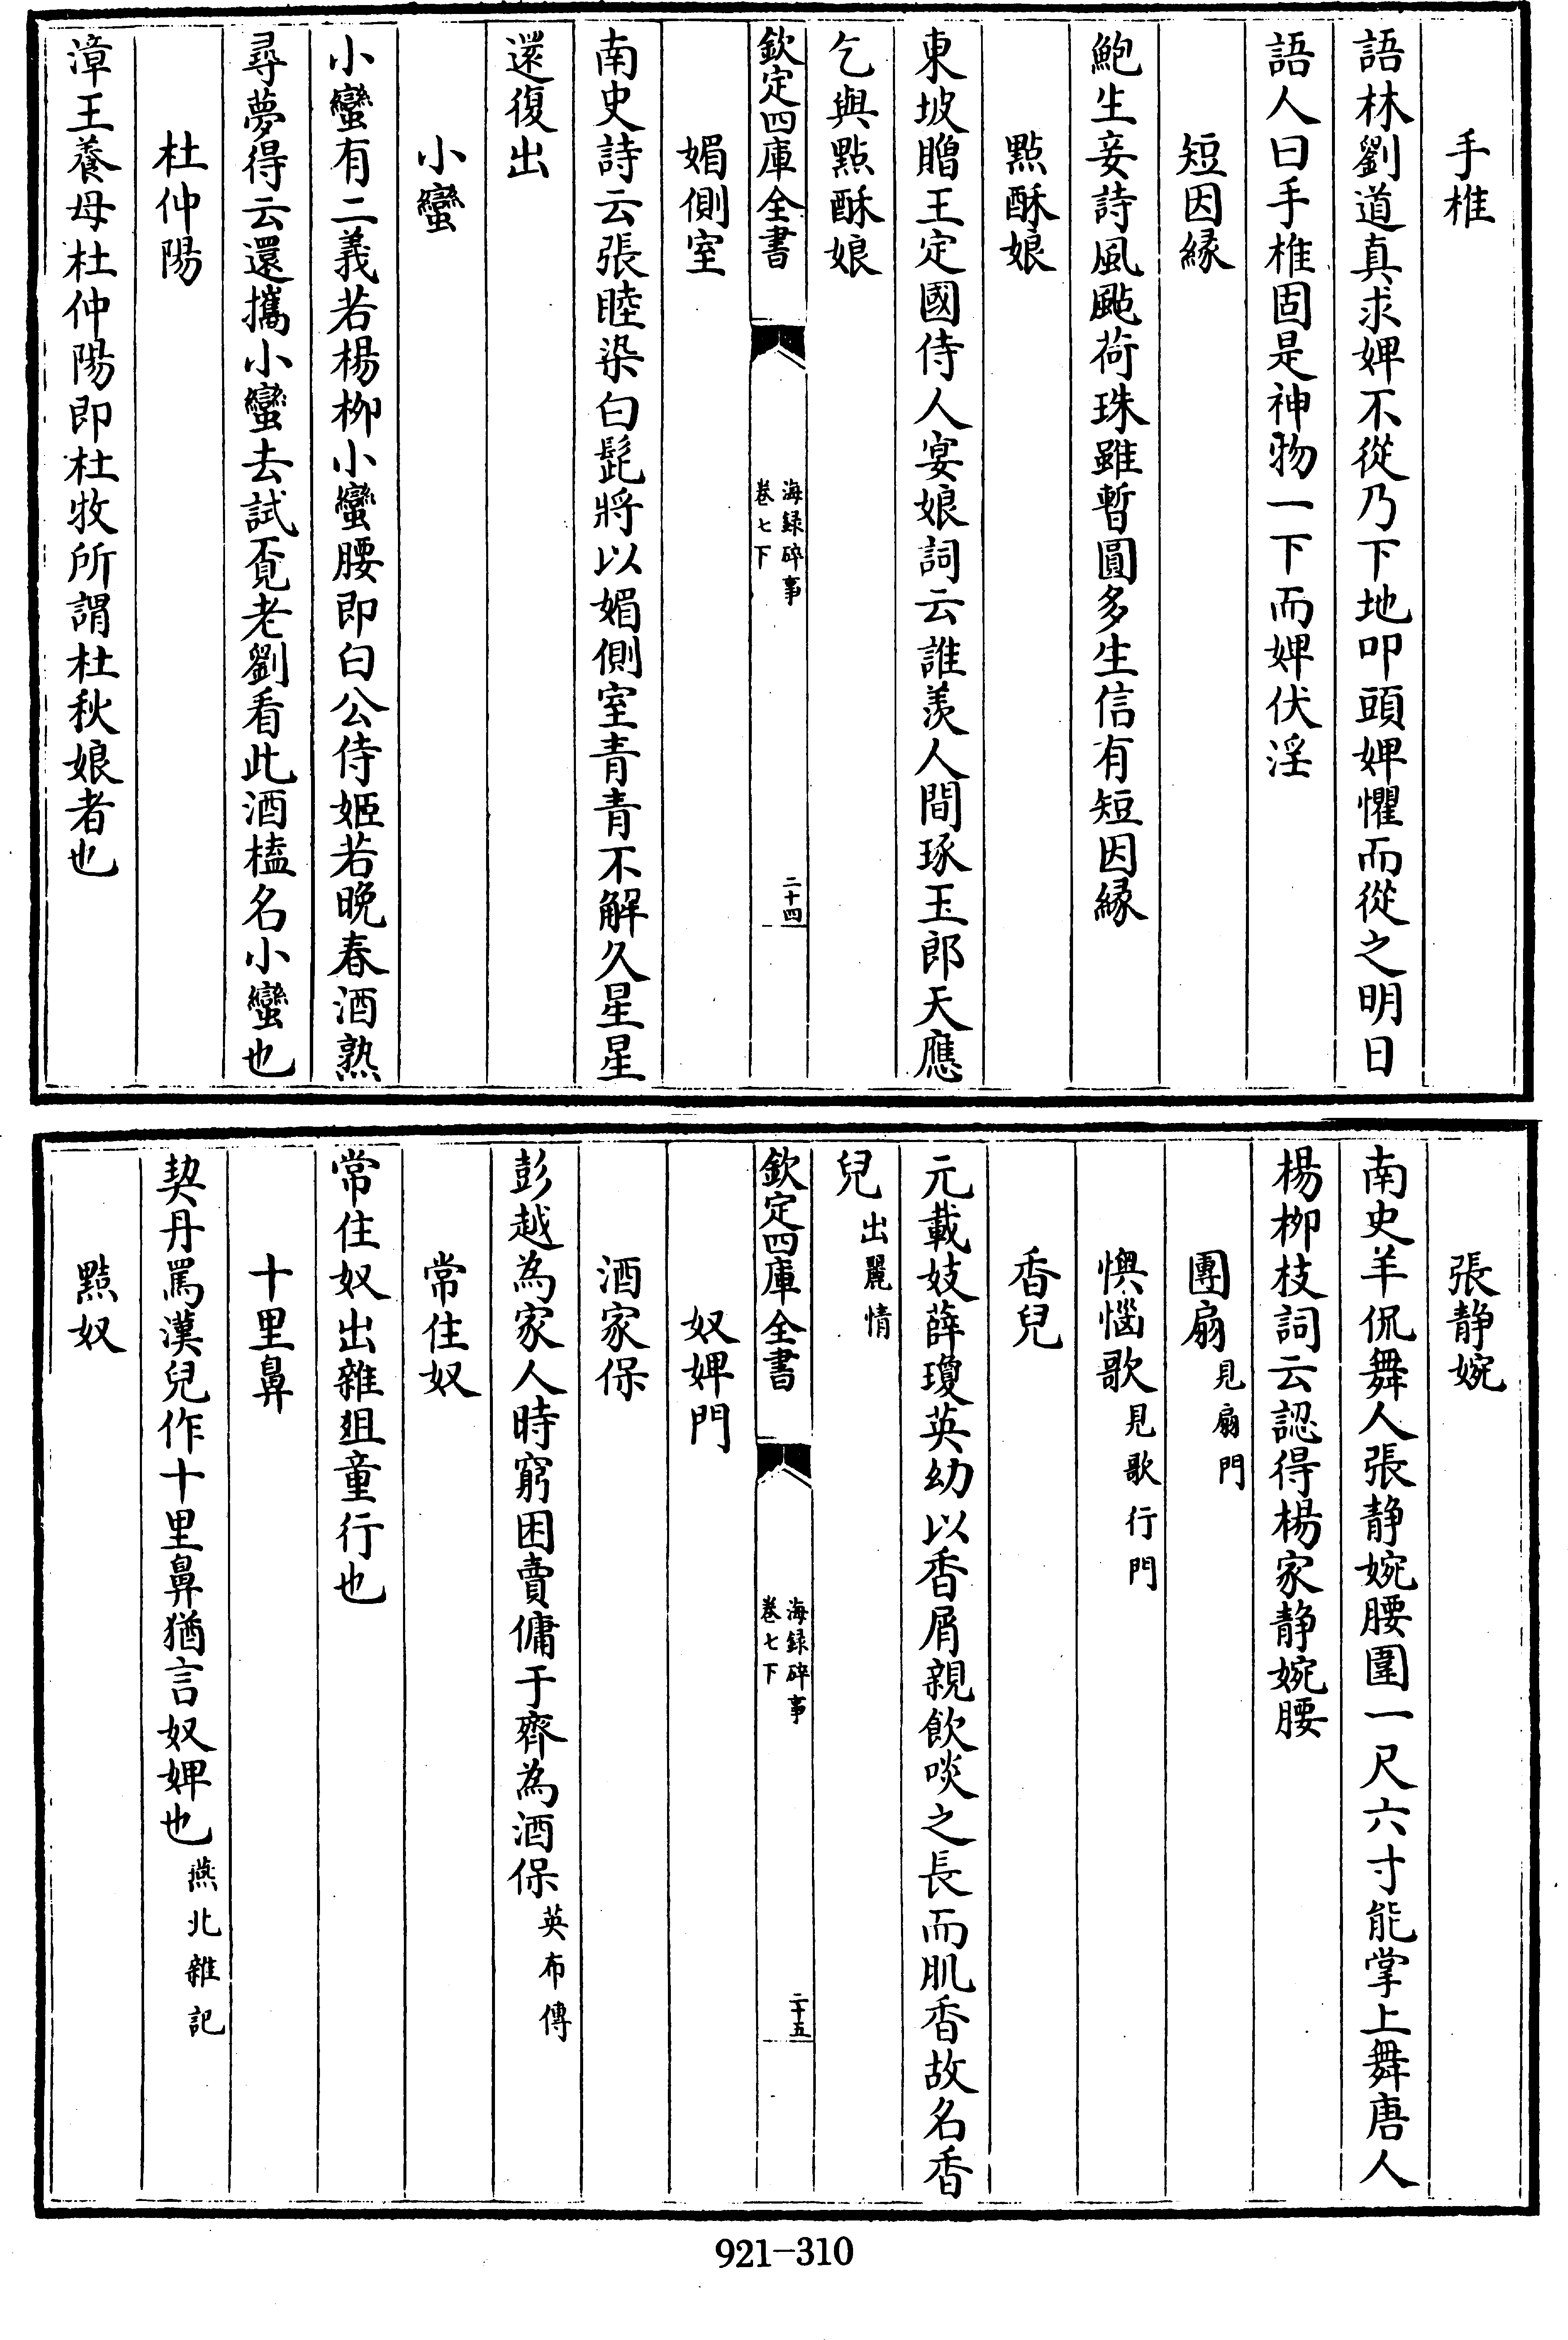 手椎
語林劉道真求婢不從乃下地叩頭婢懼而從之明日
語人曰手椎固是神物一下而婢伏淫
短因緣
鮑生妾詩風颭荷珠雖暫圓多生信有短因緣
點酥娘
東坡贈王定國侍人宴娘詞云誰羨人間琢玉郎天應
乞與點酥娘
欽定四庫全書
海録碎事
卷七下
二十四
媚側室
南史詩云張睦染白髭將以媚側室青青不解久星星
還復出
小蠻
小蠻有二義若楊柳小蠻腰即白公侍姬若晚春酒熟
尋夢得云還攜小蠻去試覓老劉看此酒榼名小蠻也
杜仲陽
漳王養母杜仲陽即杜牧所謂杜秋娘者也
張静婉
南史羊侃舞人張静婉腰圍一尺六寸能掌上舞唐人
楊柳枝詞云認得楊家静婉腰
團扇見扇門
懊惱歌見歌行門
香兒
元載妓薛瓊英幼以香屑親飲啖之長而肌香故名香
兒出麗情
欽定四庫全書
海録碎事
卷七下
二十五
奴婢門
酒家保
彭越為家人時窮困賣傭于齊為酒保英布傳
常住奴
常住奴出雜俎童行也
十里鼻
契丹罵漢兒作十里鼻猶言奴婢也燕北雜記
點奴
921-310